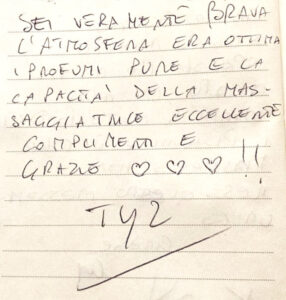 SEI VERAMENTE BRAVA
L'ATMOSFERA ERA OTTIMA
I PROFUMI PURE E LA
CAPACITA' DELLA MAS-
SAGGIATRICE ECCELLENTE
COMPLIMENTI E
GRAZIE ♡ ♡ ♡ !!
TYZ